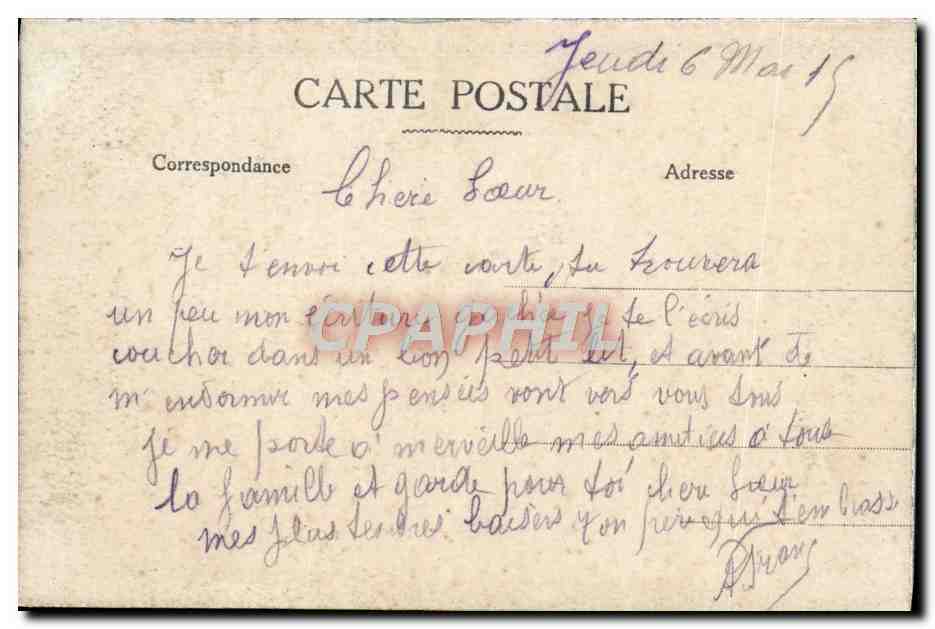 Jeudi 6 Mai 15
CARTE POSTALE
Correspondance
Adresse
Chere Sœur
Je t'envoi cette carte, tu trouvera
un peu mon je te l'écris
coucher dans un bon petit lit, et avant de
m'endormir mes pensées vont vers vous tous
je me porte a merveille mes amitiés a toute
la famille et garde pour toi chere Sœur
mes plus tendres baisers Ton frere qui t'embrasse
CPAPHIL